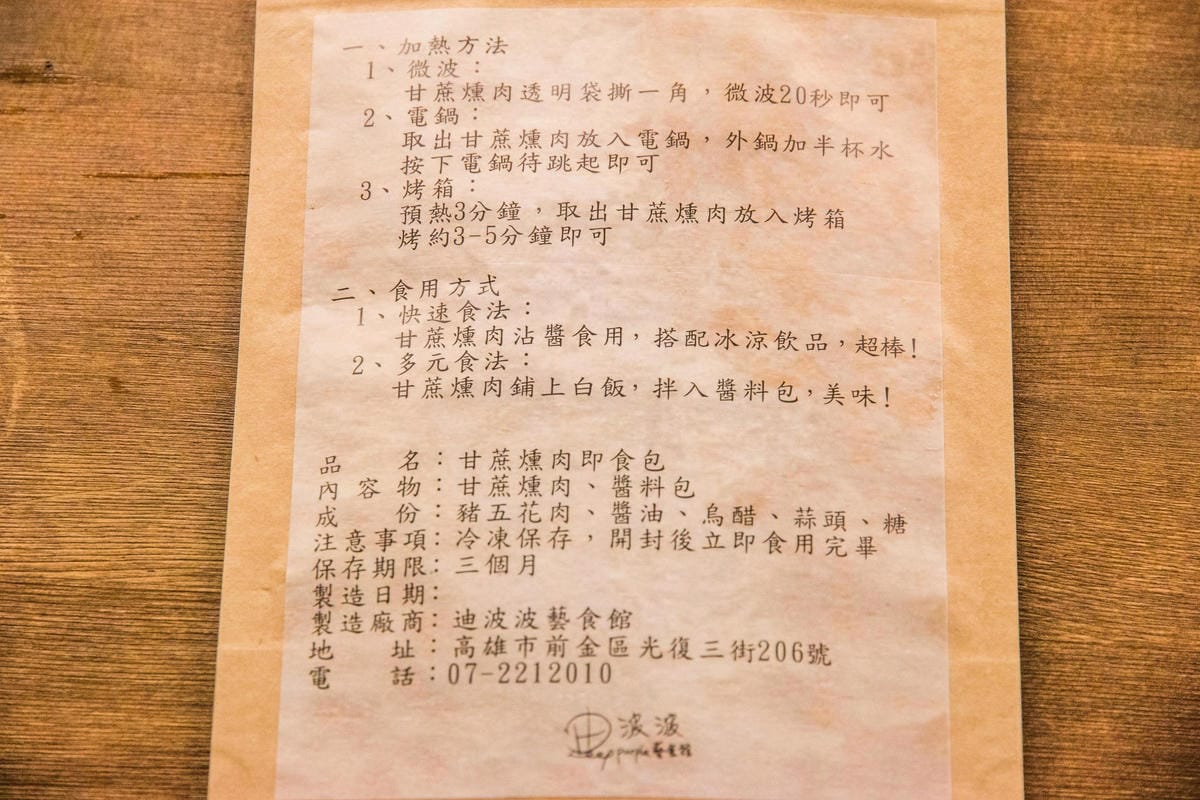 一、加熱方法
1、微波：
甘蔗燻肉透明袋撕一角，微波20秒即可
2、電鍋：
取出甘蔗燻肉放入電鍋，外鍋加半杯水
按下電鍋待跳起即可
3、烤箱：
預熱3分鐘，取出甘蔗燻肉放入烤箱
烤約3-5分鐘即可
二、食用方式
1、快速食法：
甘蔗燻肉沾醬食用，搭配冰涼飲品，超棒!
2、多元食法：
甘蔗燻肉鋪上白飯，拌入醬料包，美味!
品名：甘蔗燻肉即食包
內容物：甘蔗燻肉、醬料包
成份：豬五花肉、醬油、烏醋、蒜頭、糖
注意事項：冷凍保存，開封後立即食用完畢
保存期限：三個月
製造日期：
製造廠商：迪波波藝食館
地址：高雄市前金區光復三街206號
電話：07-2212010
迪波波
Deep purple 藝食館